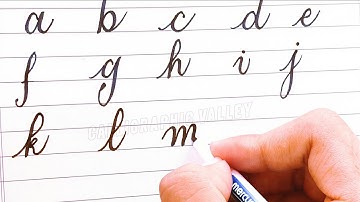 a b c d e
f g h i j
k l m
CALLIGRAPHIC VALLEY